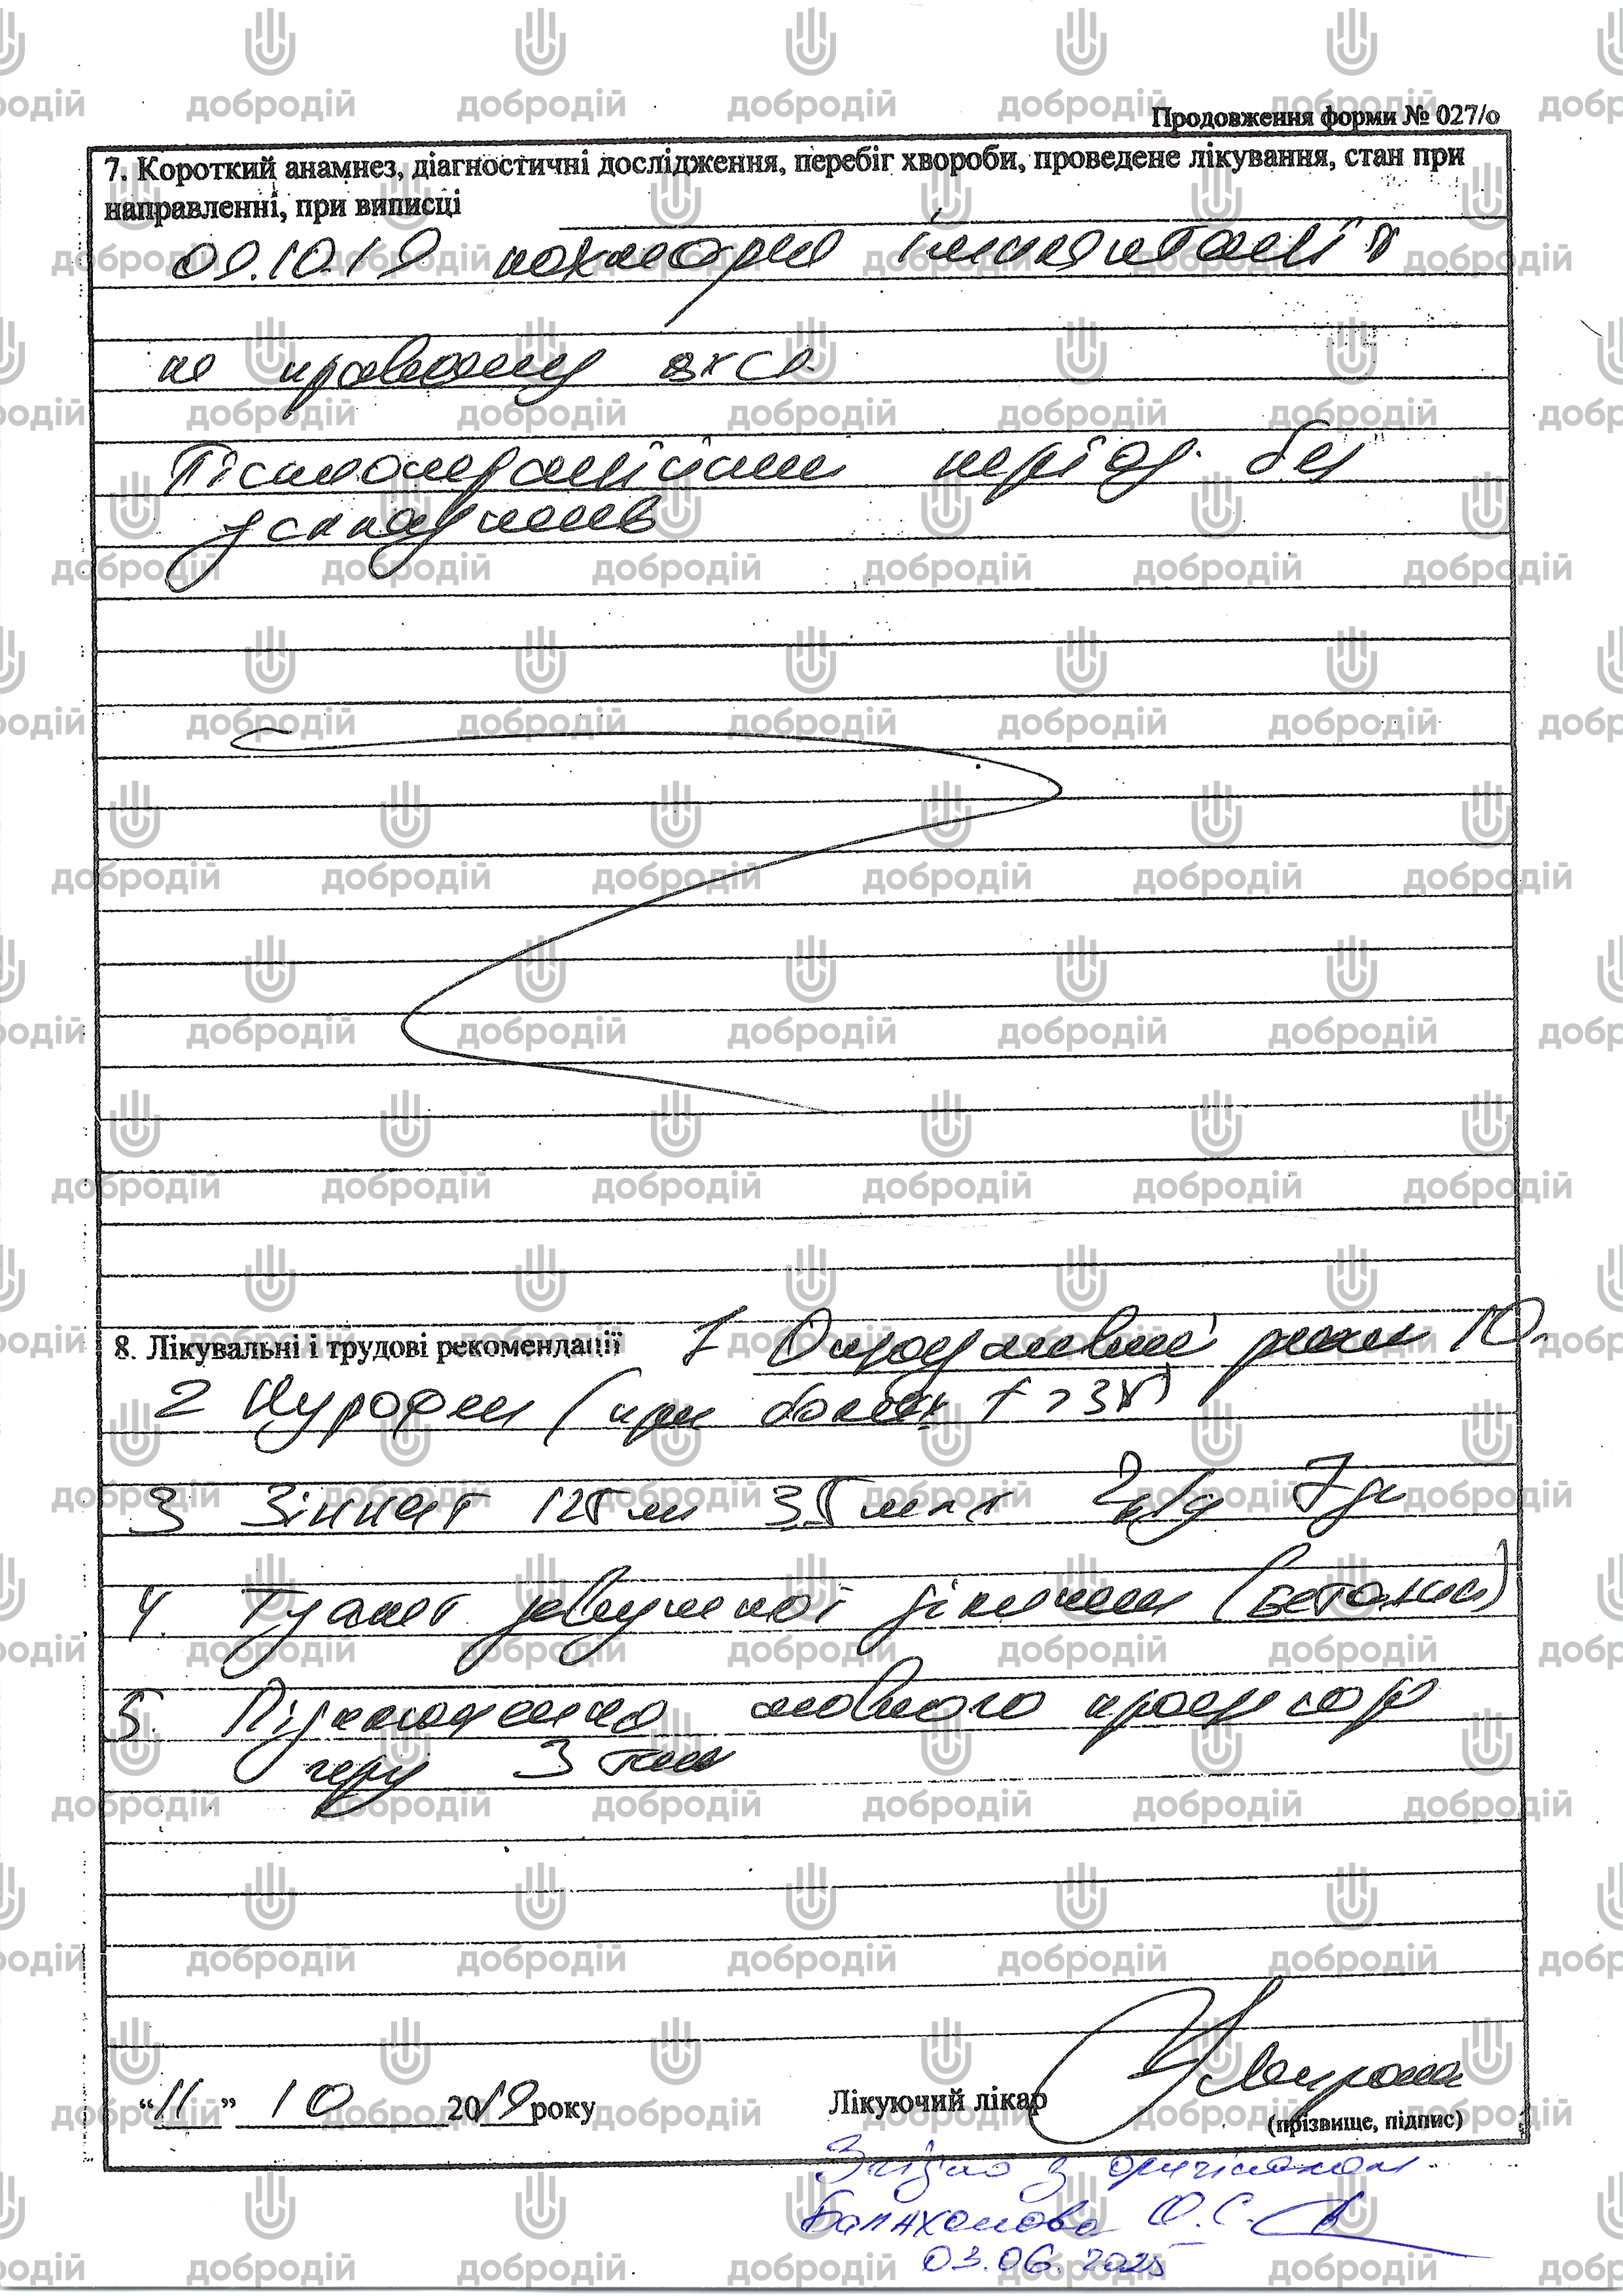 Продовження форми № 027/о
7. Короткий анамнез, діагностичні дослідження, перебіг хвороби, проведене лікування, стан при
направленні, при виписці
09.10.19 кохлеарна імплантація
на правому вусі.
Післяопераційний період без
ускладнень
8. Лікувальні і трудові рекомендації 1 Оздоровчий режим 10.
2 Нурофен (при болях t > 38)
3 Зіннат 125 мг 3,5 мл 2 р/д 7 дн
4. Туалет завушної ділянки (бетадин)
5. Підключення мовного процесора
через 3 тижні
“11” 10 2019 року Лікуючий лікар
(прізвище, підпис)
Згідно з оригіналом
Балахонова О.С.
03.06.2025
добродій